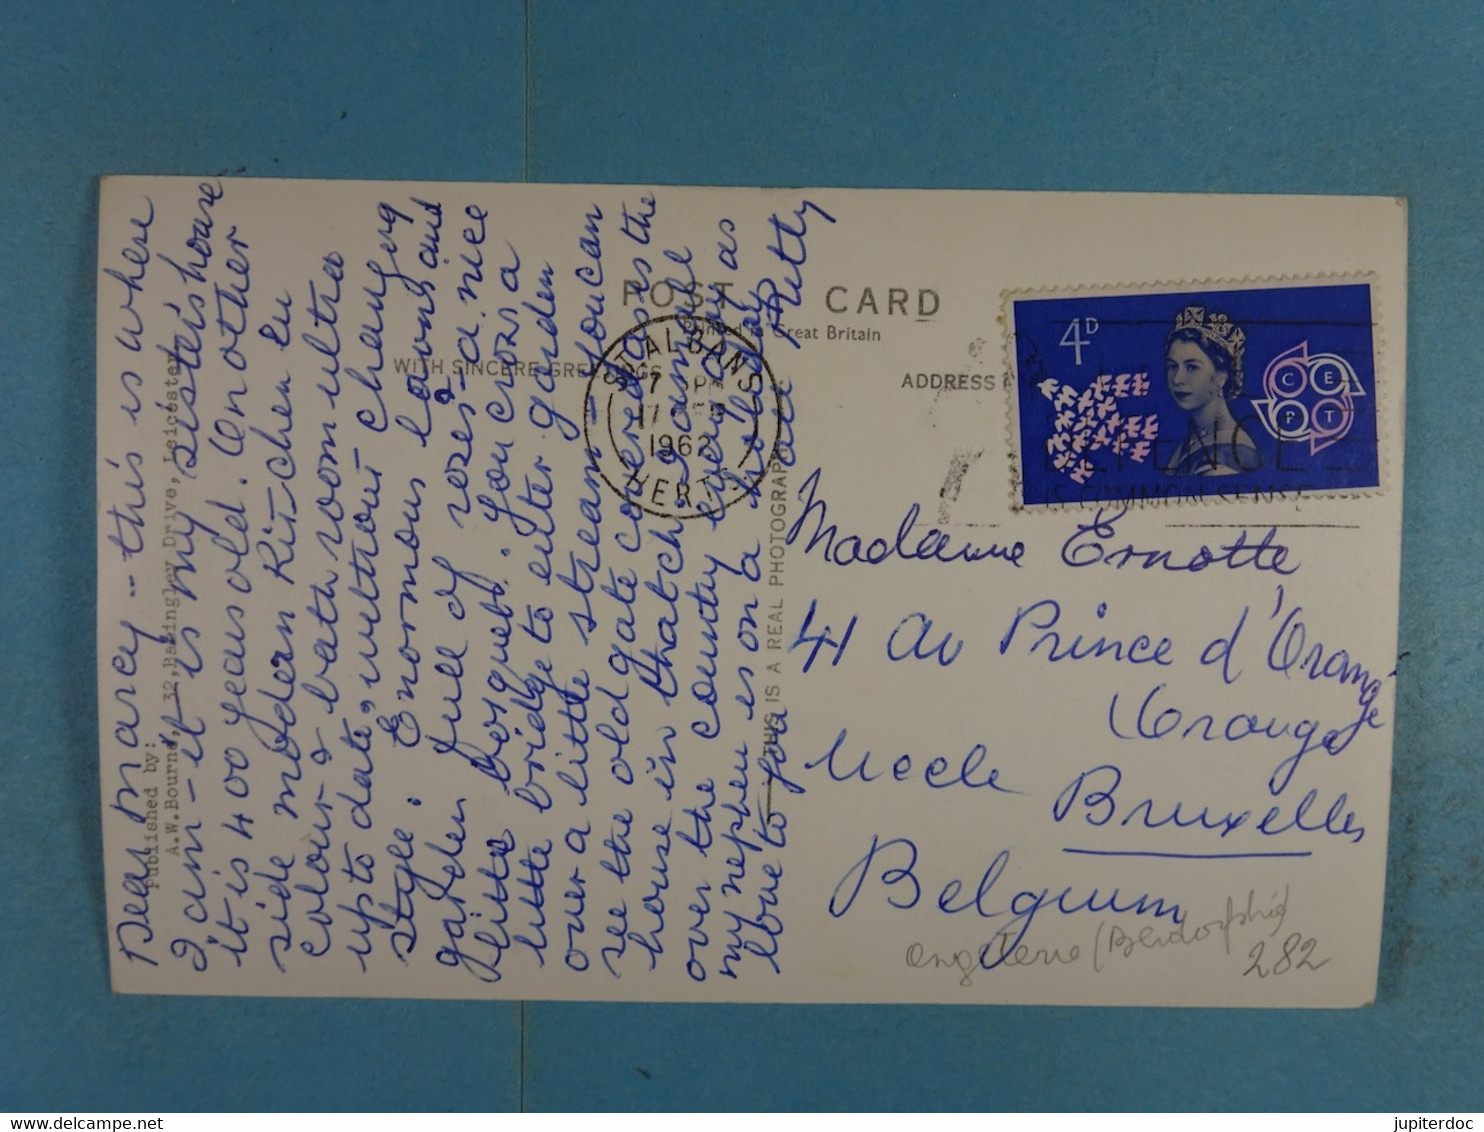 Dear Marcy - this is where
I am - it is my sister's house
it is 400 years old. Another
side modern Kitchen en
colour & bath room ultra
up to date, without changing
style. Enormous lawns and
garden full of roses - a nice
little bosquet. You cross a
little bridge to enter garden
over a little stream - you can
see the old gate covered as the
house in thatch.
over the country every day as
my nephew is on a holiday
love to you all Kitty
Published by:
A.W.Bourne, 32, Basingley Drive, Leicester
POST CARD
Printed in Great Britain
WITH SINCERE GREETINGS
ADDRESS
THIS IS A REAL PHOTOGRAPH
ST ALBANS
7 PM
17
1962
HERTS
4D
CEPT
DEFENCE
IS COMMON SENSE
Madame Ernotte
41 Av Prince d'Orange
Orange
Uccle
Bruxelles
Belgium
282
jupiterdoc
delcampe.net